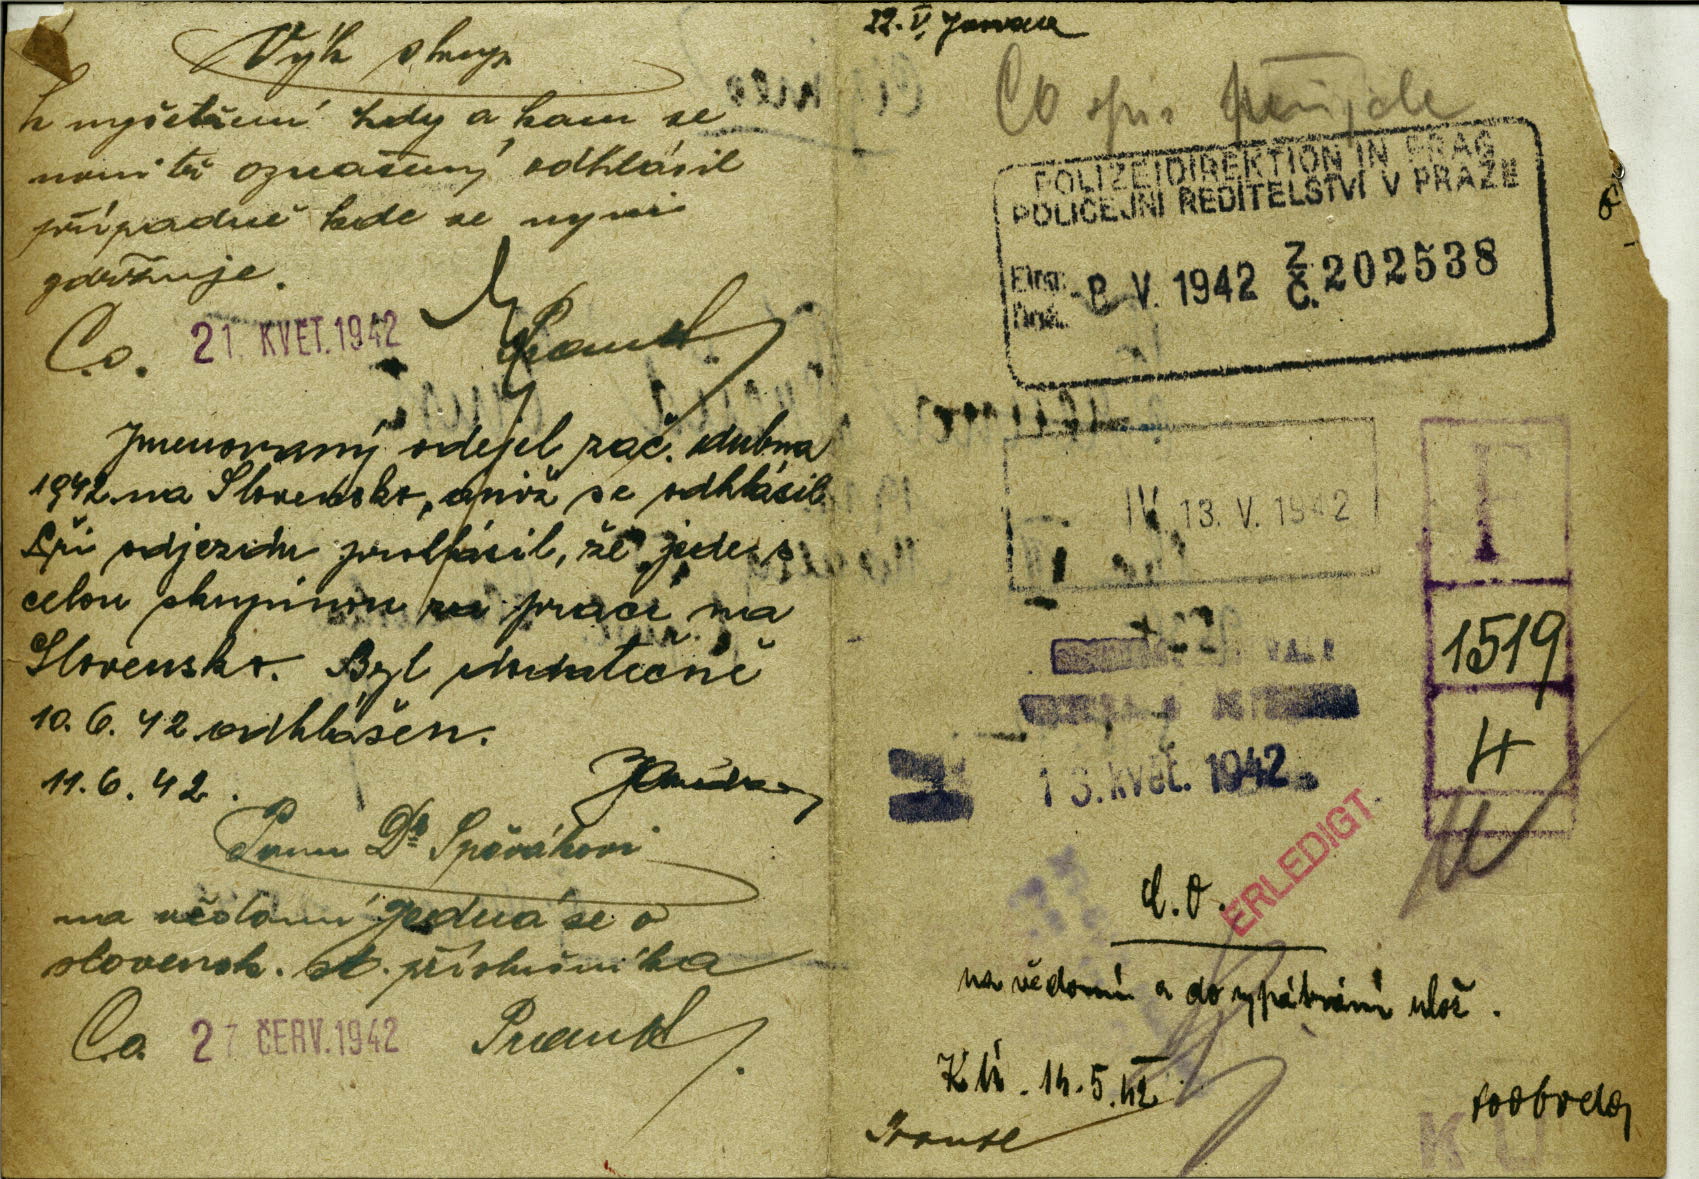 Výk skup
k vyšetření kdy a kam se
označený odhlásil
případně kde se nyní
zdržuje.
Co. 21. KVĚT. 1942
Jmenovaný odejel zač. dubna
1942 na Slovensko, aniž se odhlásil
Při odjezdu prohlásil, že jede s
celou skupinou za prací na
Slovensko. Byl dodatečně
10. 6. 42 odhlášen.
11. 6. 42.
Panu Dr Spěvákovi
na vědomí jedná se o
slovensk. st. příslušníka
Co. 27. ČERV. 1942
22. V.
Co
POLIZEIDIREKTION IN PRAG
POLICEJNÍ ŘEDITELSTVÍ V PRAZE
Eing.
Došlo -8 V. 1942 Z. Č. 202538
IV 13. V. 1942
I
1519
4
13. květ. 1942
ERLEDIGT
na vědomí a do vypátrání ulož.
14. 5. 42
Svoboda
KU